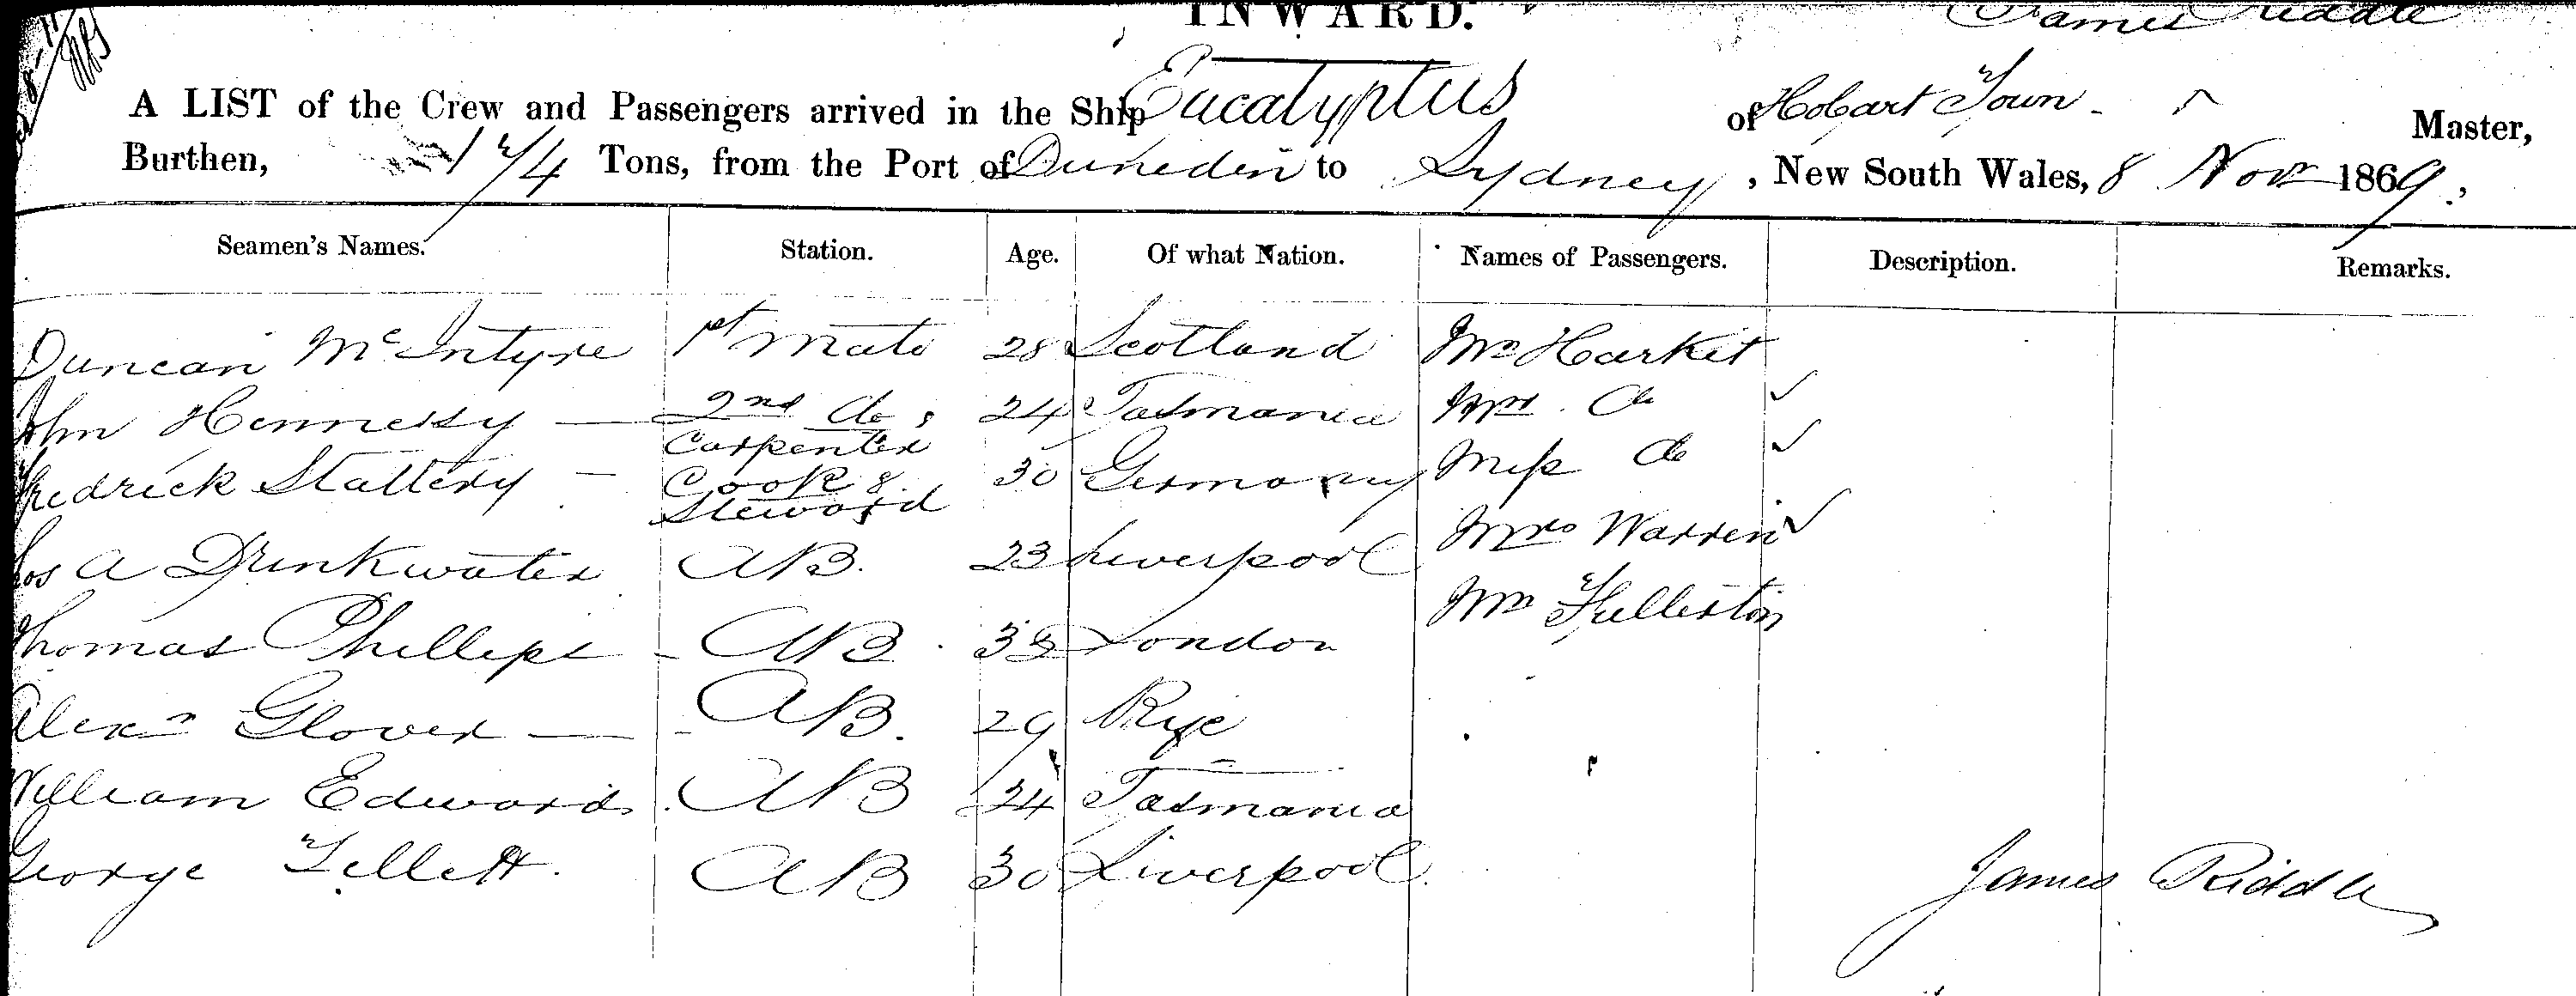 INWARD.
James Riddle
A LIST of the Crew and Passengers arrived in the Ship Eucalyptus of Hobart Town Master,
Burthen, Tons, from the Port of Dunedin to Sydney, New South Wales, 8 Novr 1869.
Seamen's Names. Station. Age. Of what Nation. Names of Passengers. Description. Remarks.
Duncan McIntyre 1st Mate 28 Scotland Mr Harket
John Hennessy 2nd do 24 Tasmania Mrs. do
Carpenter
Fredrick Stattery Cook & Steward 30 Germany Miss do
A Drinkwater AB. 23 Liverpool Mrs Warren
Thomas Phillips AB. London Mr Fullerton
Alexr Glover AB. 29 Rye
William Edwards. AB 24 Tasmania
George Tellett. AB 30 Liverpool.
James Riddle